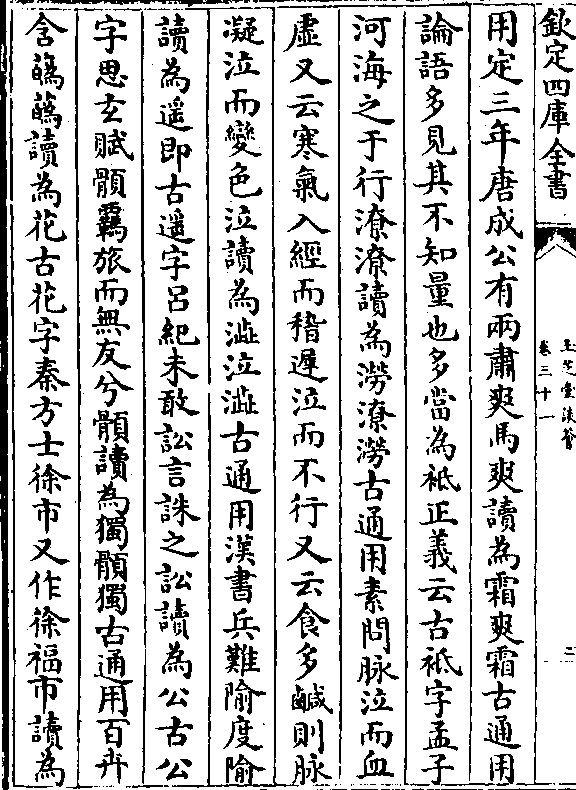 欽定四庫全書
玉芝堂談薈
卷三十一
二
用定三年唐成公有兩肅爽馬爽讀為霜爽霜古通用
論語多見其不知量也多當為祗正義云古祗字孟子
河海之于行潦潦讀為澇潦澇古通用素問脉泣而血
虛又云寒氣入經而稽遲泣而不行又云食多鹹則脉
凝泣而變色泣讀為澁泣澁古通用漢書兵難隃度隃
讀為遥即古遥字呂紀未敢訟言誅之訟讀為公古公
字思玄賦顝羈旅而無友兮顝讀為獨顝獨古通用百卉
含蘤蘤讀為花古花字秦方士徐巿又作徐福巿讀為